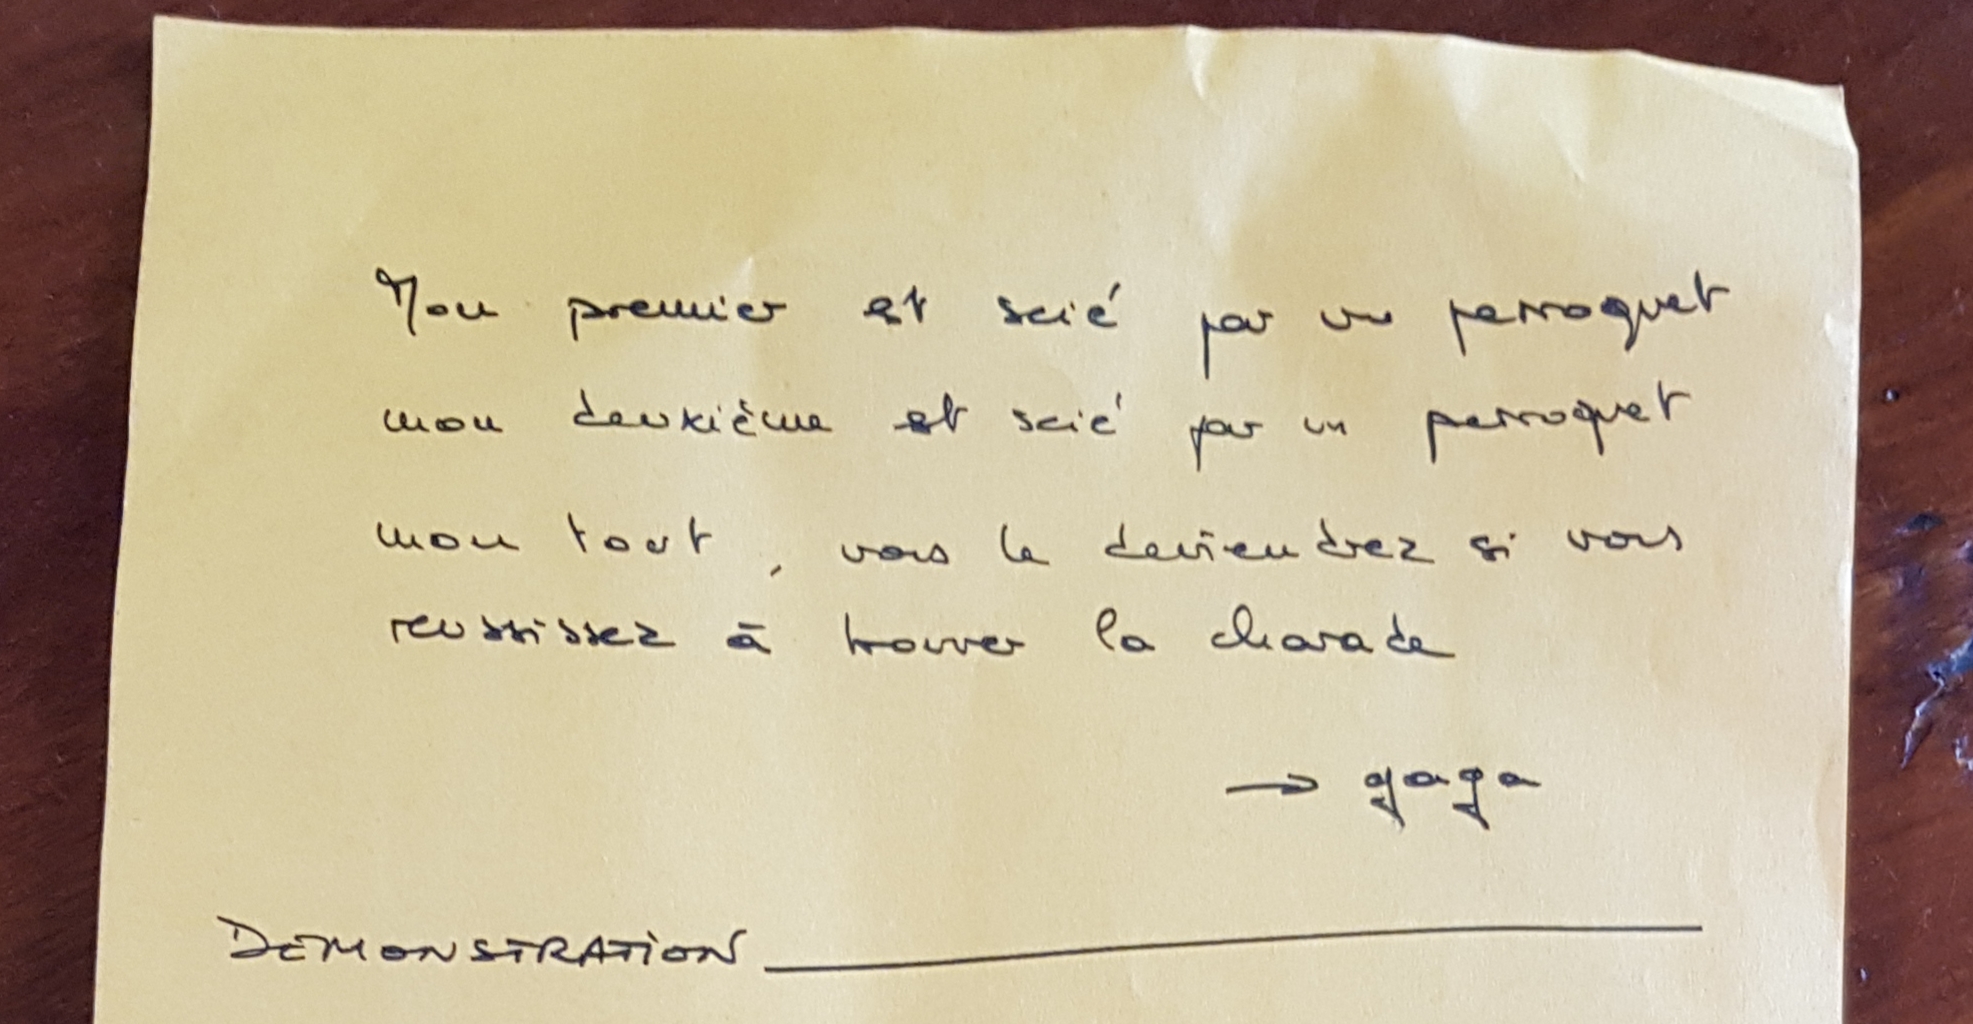 Mon premier est scié par un perroquet
mon deuxième est scié par un perroquet
mon tout, vous le deviendrez si vous
reussissez à trouver la charade
→ gaga
DEMONSTRATION